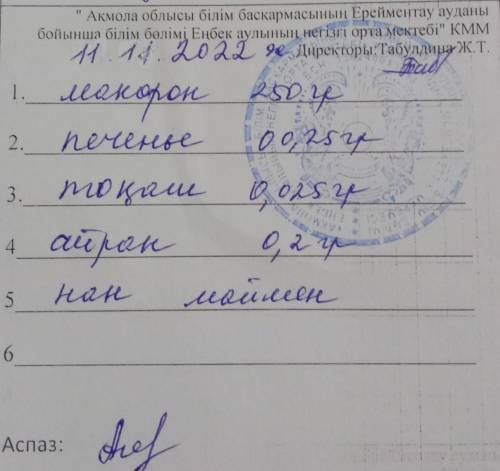 " Ақмола облысы білім басқармасының Ерейментау ауданы
бойынша білім бөлімі Еңбек аулының негізгі орта мектебі" КММ
11.11.2022 ж Директоры:Табулдина Ж.Т.
1. макорон 250 гр
2. печенье 00,25 гр
3. тоқаш 0,025 гр
4 айран 0,2 гр
5 нан маймен
6
Аспаз: